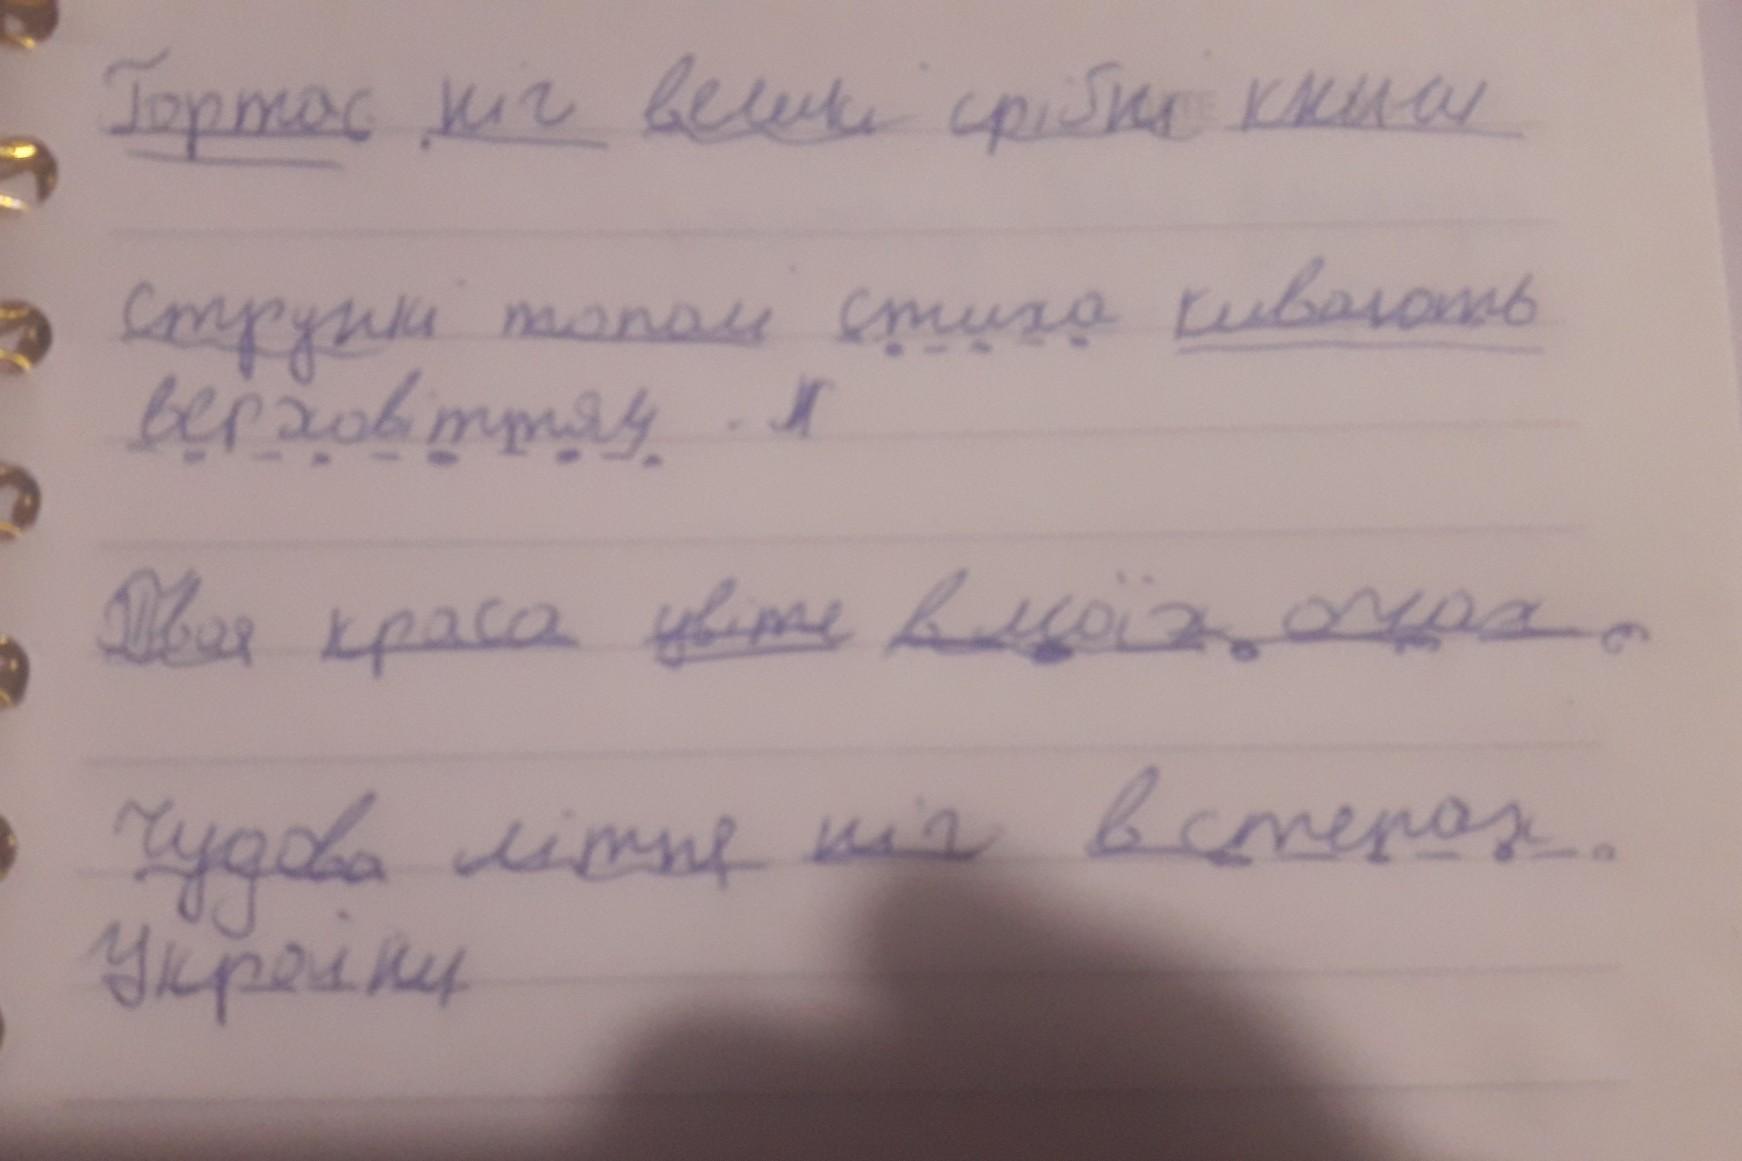 Гортає ніч великі срібні книги
стрункі тополі стиха кивають
верховіттям.
Твоя краса цвіте в моїх очах.
Чудова літня ніч в степах
України